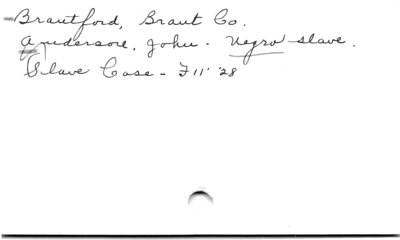 Brantford, Brant Co.
Anderson, John. Negro slave.
Slave Case - F 11 '28